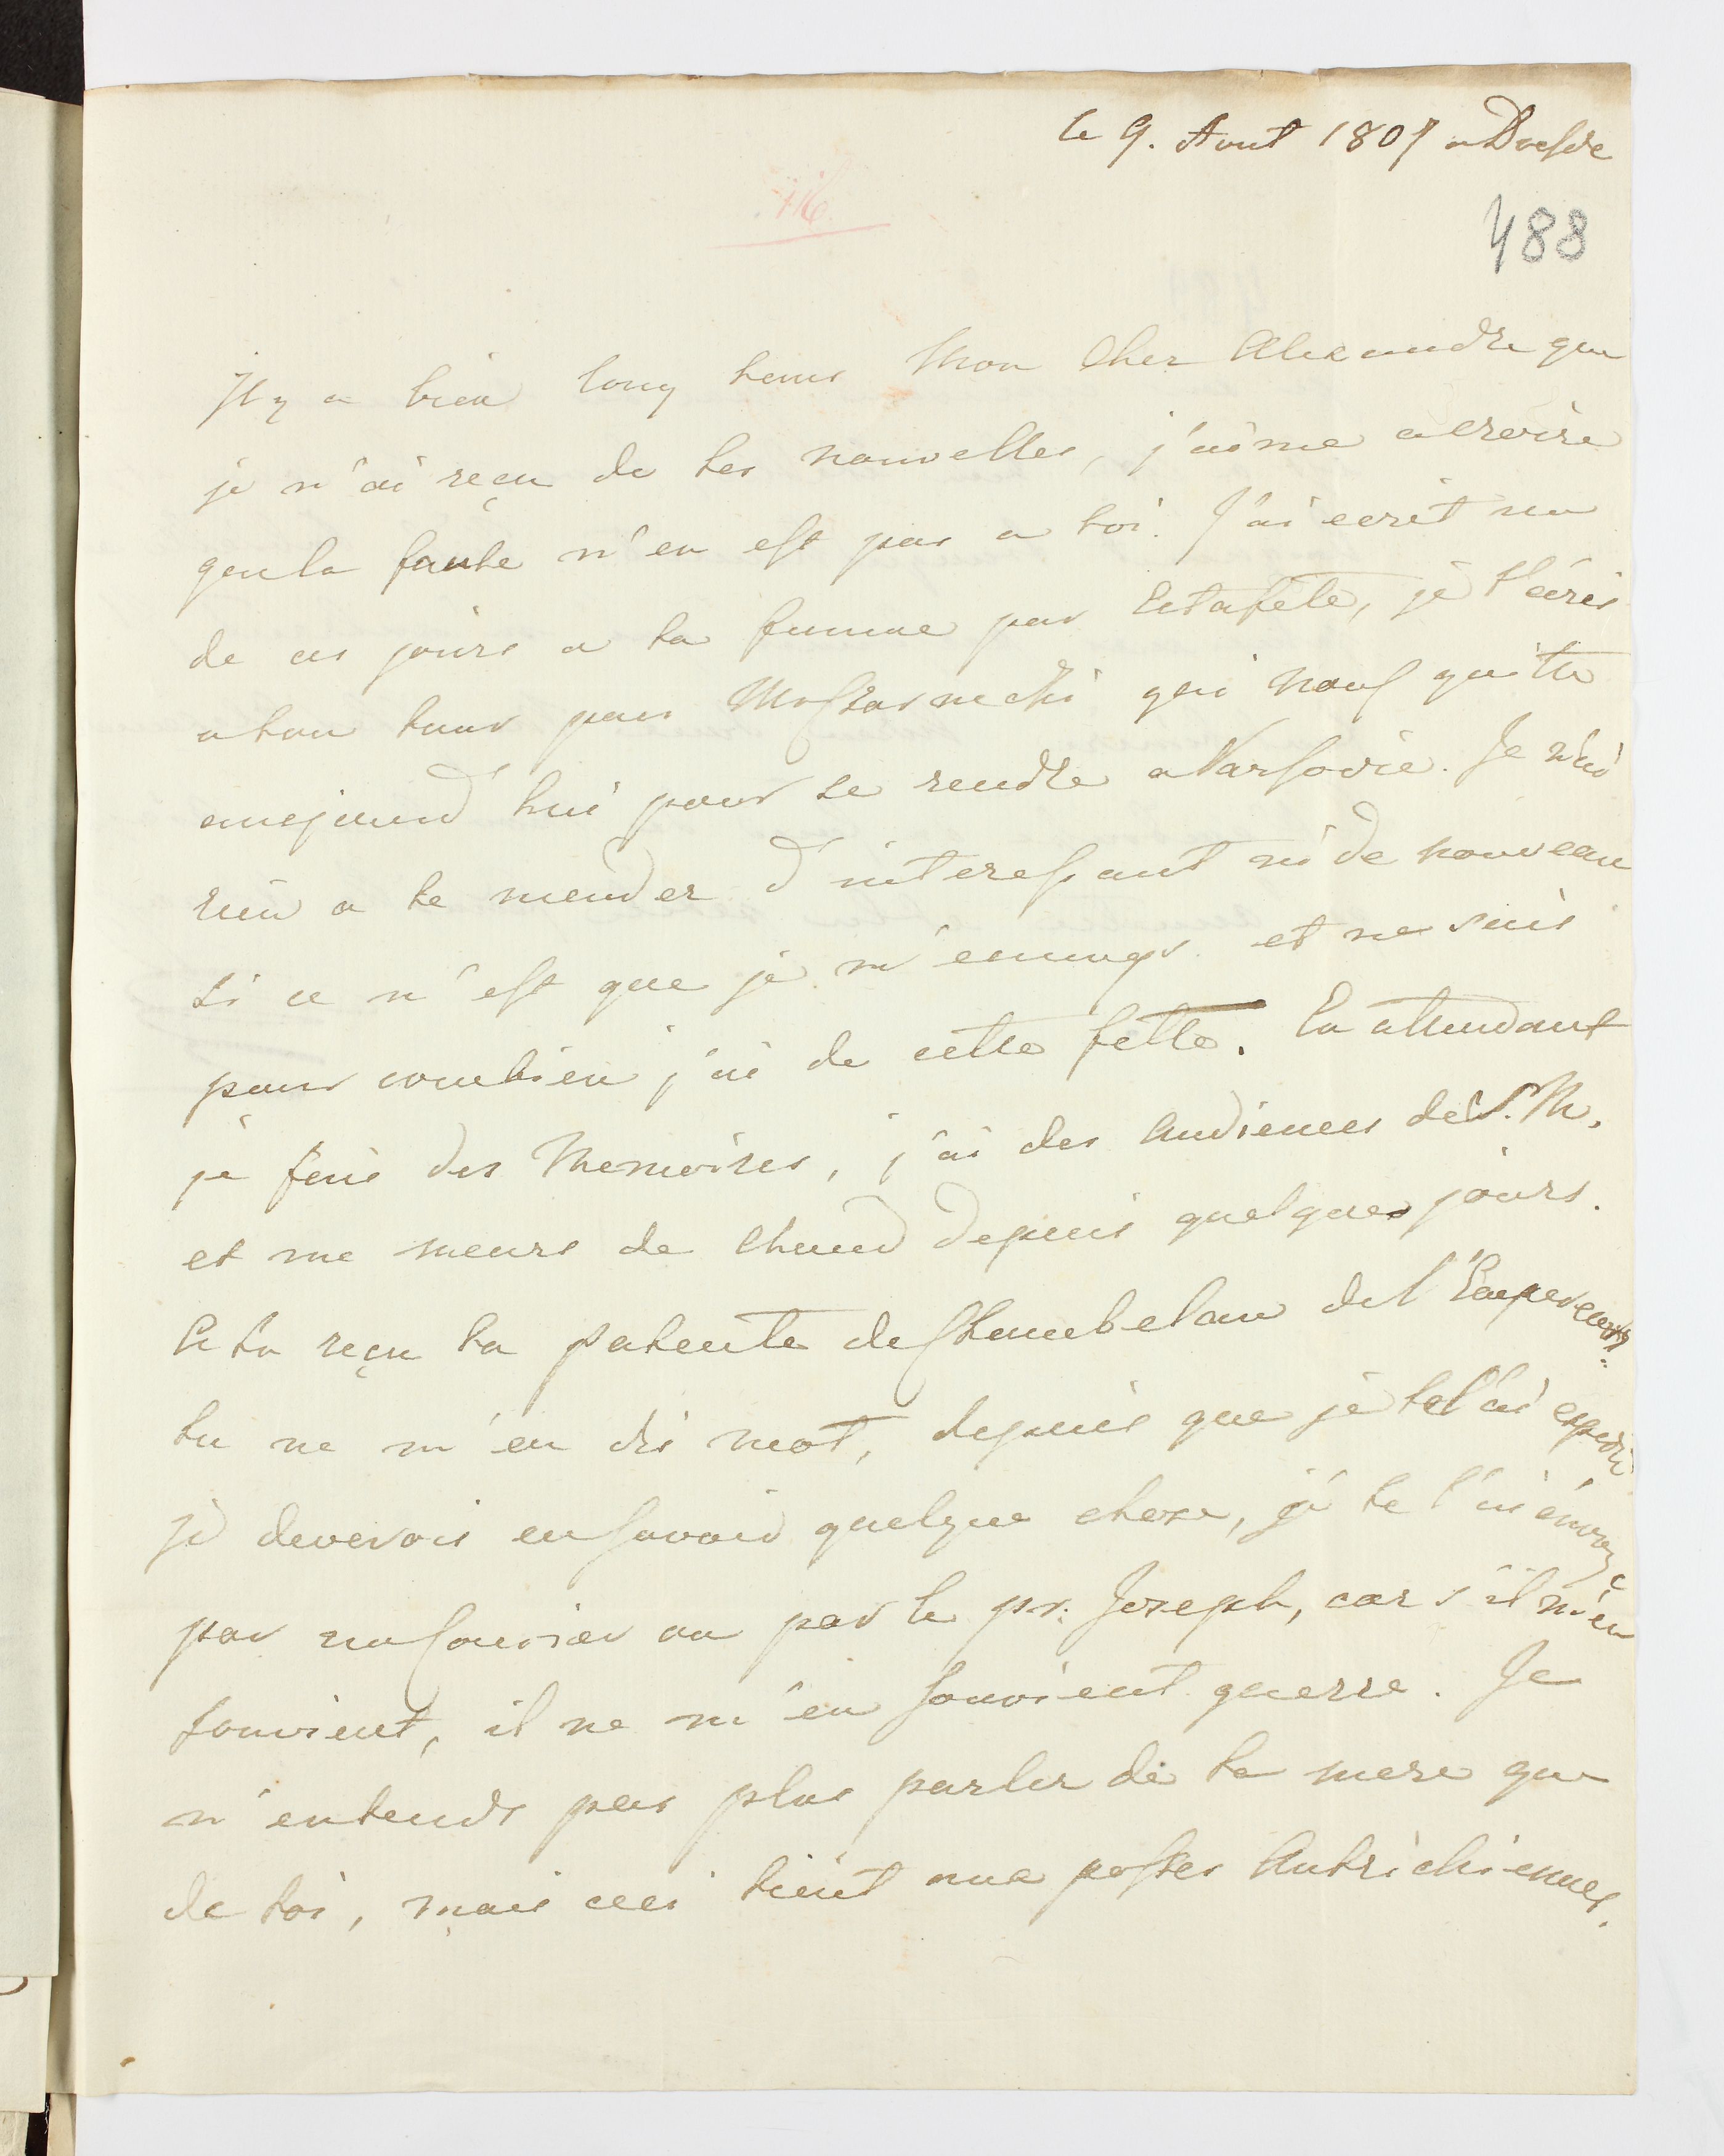 le 9. Aout 1807 a Dresde
116.
488
Il y a bien long tems Mon Cher Alexandre que
je n'ai reçu de tes nouvelles, j'aime a croire
que la faute n'en est pas a toi. J'ai ecrit un
de ces jours a ta femme par Estafete, je t'écris
a ton tour par qui nous quitte
aujourd'hui pour se rendre a Varsovie. Je n'ai
rien a te mander d'interessant ni de nouveau
si ce n'est que je m'ennuye et ne sais
pour combien j'ai de cette fette. En attendant
je fais des Memoires, j'ai des Audiences de S. M.
et me meurs de chaud depuis quelques jours.
As tu reçu ta patente de Chambelan de l'Empereur?
tu ne m'en dis mot, depuis que je te l'ai expedié
je deverois en savoir quelque chose, je te l'ai énvoyé
par un courier ou par le pr: Joseph, car s'il m'en
souvient, il ne m'en souvient guerre. Je
n'entends pas plus parler de ta mere que
de toi, mais ceci tient aux postes Autrichiennes.